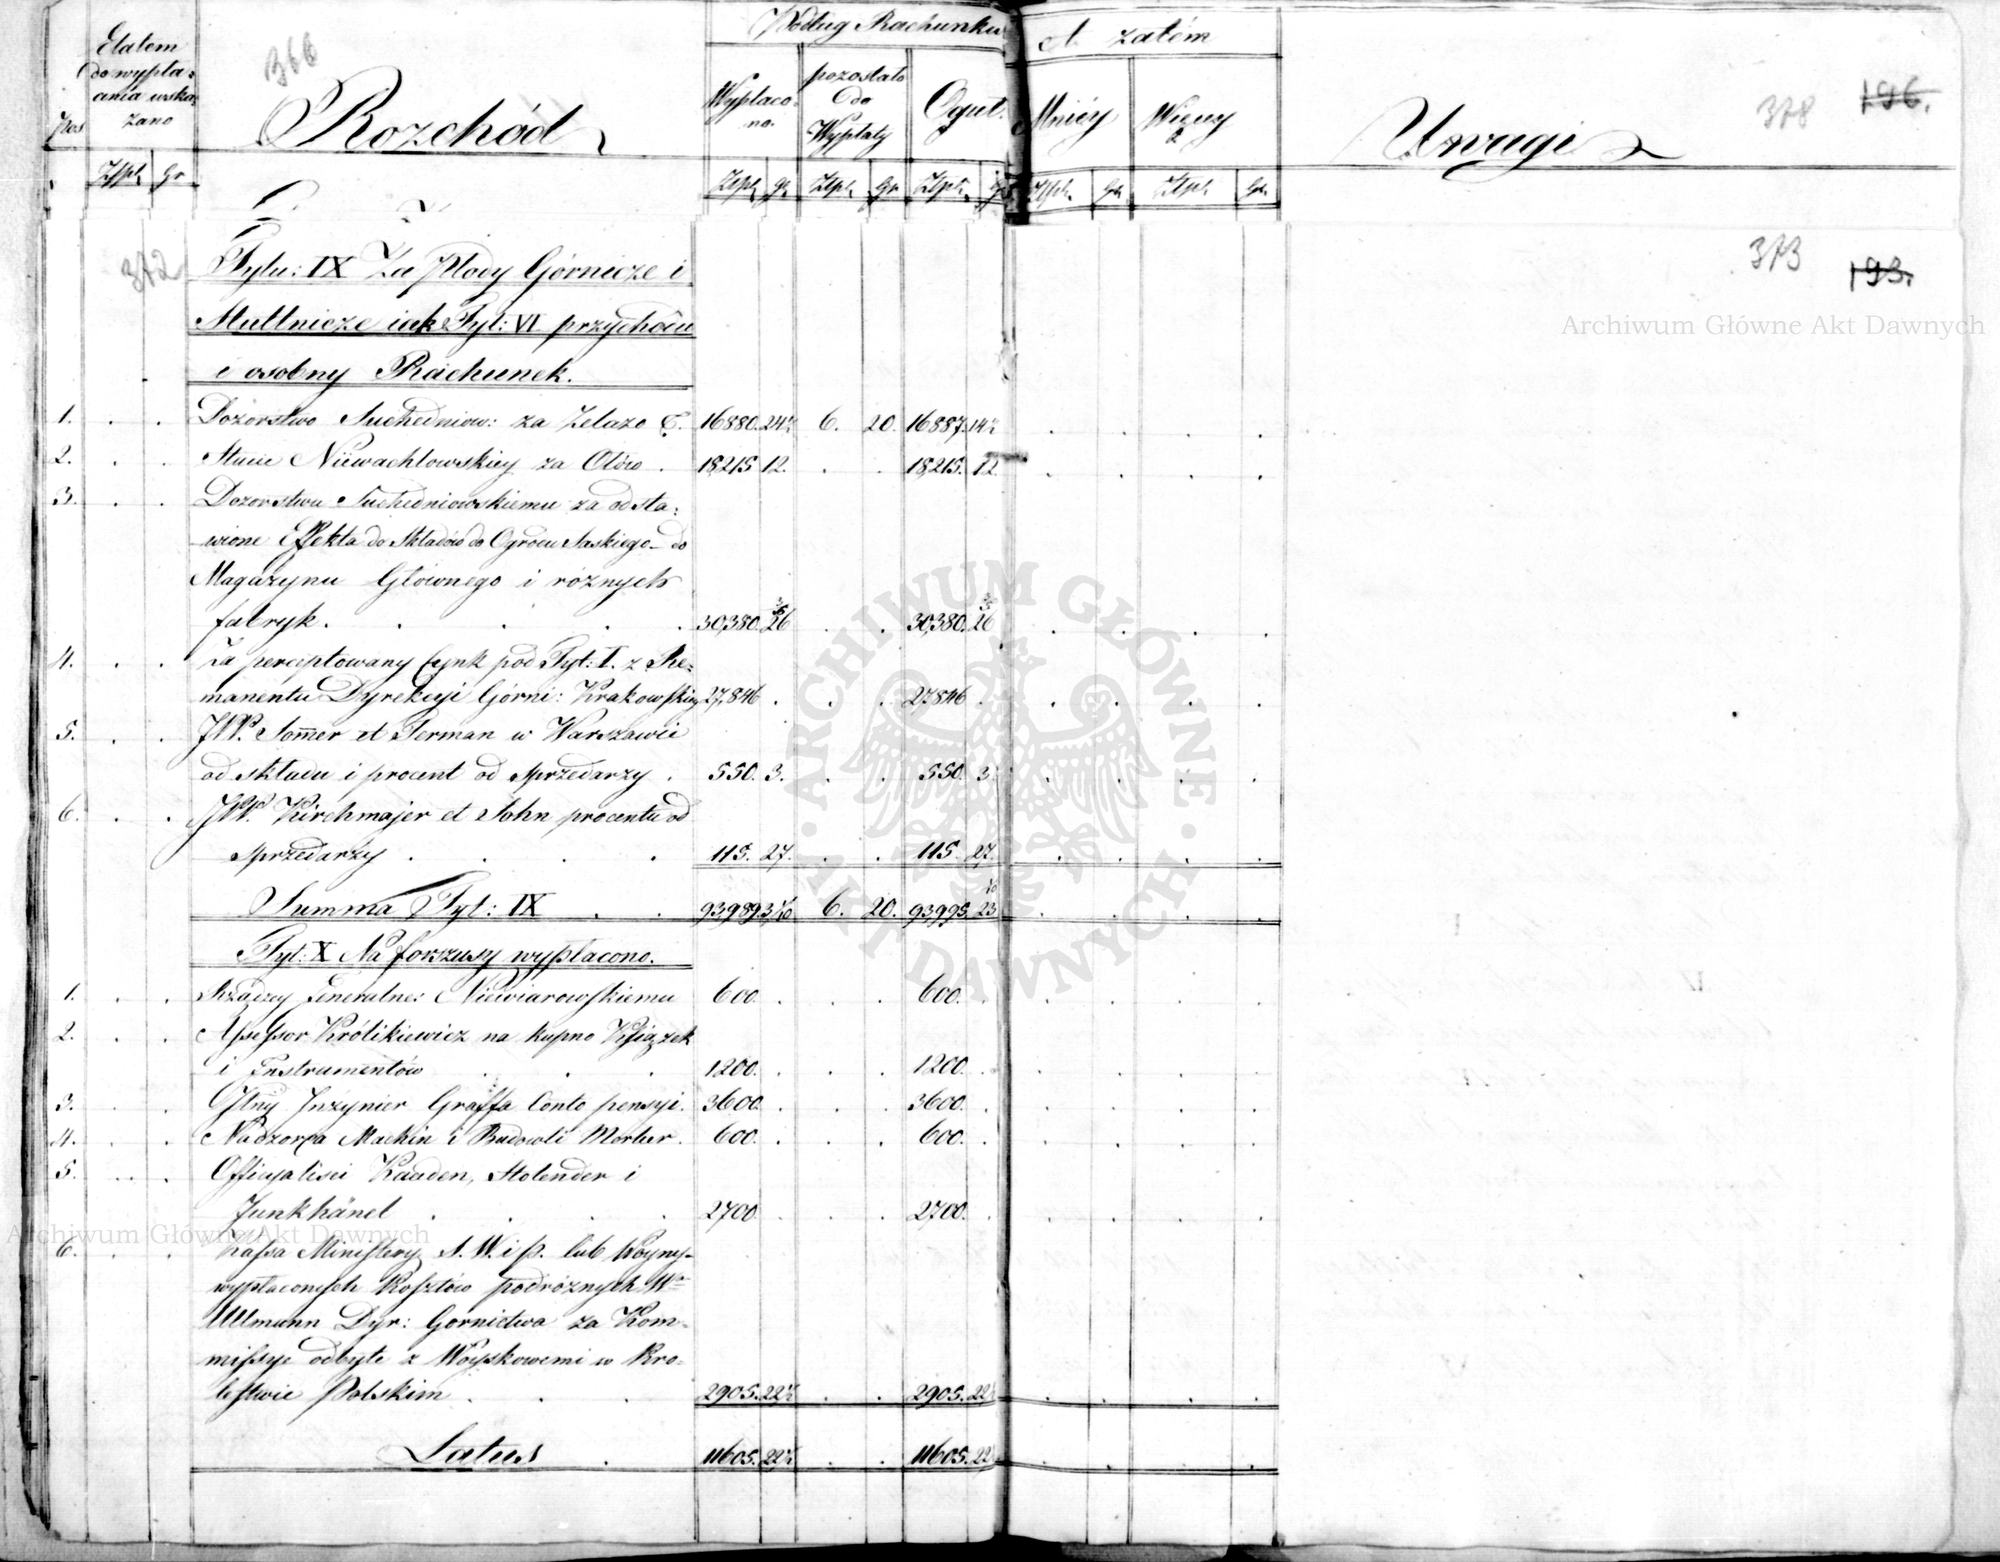 Etatem do wypłacania wskazano
366
Rozchód
Podług Rachunku
A zatém
Pos
Wypłacono.
pozostało do Wypłaty
Ogół.
Mniéy
Więcey
Uwagi
378 196.
Złpl. Gr Złpl. gr Złpl. Gr Złpl. gr Złpl. Gr. Złpl. Gr.
372
373 193.
Tytu: IX Za Płody Górnicze i
Huttnicze iak Tyt: VI przychodu
i osobny Rachunek.
1. Dozorstwo Suchedniow: za Żelazo 16880. 24½ 6. 20. 16887. 14½
2. Hucie Niewachlowskiey za Ołów 18215 12. 18,215. 12
3. Dozorstwu Suchedniowskiemu za odsta:
wione Effekta do Składów do Ogrodu Saskiego do
Magazynu Głównego i różnych
fabryk. 30,380. 26 30,380. 26
4. Za perceptowany Cynk pod Tyt: I. z Re=
manentu Dyrekcyi Górni: Krakowskiey 27,846 27846
5. JPP. Sommer et Ferman w Warszawie
od składu i procent od sprzedarzy 550. 3. 550. 3
6. JPP. Kirchmajer et John procentu od
sprzedarzy 115. 27. 115. 27.
Summa Tyt: IX 93,989. 3 6. 20. 93,995. 23
Tyt: X Na forszusy wypłacono.
1. Rządzcy Generalne: Niewiarowskiemu 600. 600.
2. Assessor Królikiewicz na kupno Książek
i Instrumentów 1200. 1200.
3. Inżynier Graffa Conto pensyi. 3600. 3600.
4. Nadzorca Machin i Budowli 600. 600.
5. Officyaliści Kaaden, Holender i
Junkhänel 2700. 2700.
6. Kassa Ministery S. W. i P. lub Woyny
wypłaconych Kosztów podróżnych
Ullmann Dyr: Gornictwa za Kom=
missye odbyte z Woyskowemi w Kro=
lestwie Polskim 2905. 22½ 2905. 22½
Latus 11605. 22½ 11605. 22½
Archiwum Główne Akt Dawnych
Archiwum Główne Akt Dawnych
ARCHIWUM GŁÓWNE · AKT DAWNYCH ·